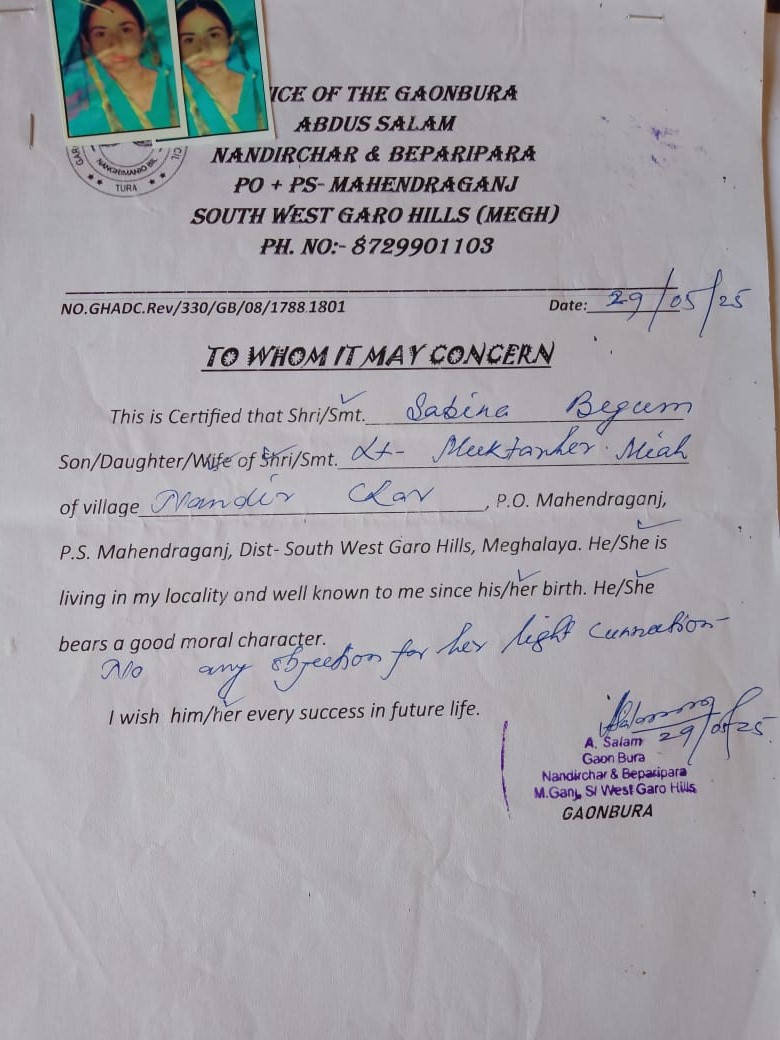 ICE OF THE GAONBURA
ABDUS SALAM
NANDIRCHAR & BEPARIPARA
PO + PS- MAHENDRAGANJ
SOUTH WEST GARO HILLS (MEGH)
PH. NO:- 8729901103
TURA
NO.GHADC.Rev/330/GB/08/1788.1801 Date: 29/05/25
TO WHOM IT MAY CONCERN
This is Certified that Shri/Smt. Sabina Begum
Son/Daughter/Wife of Shri/Smt. Lt- Muktanher Miah
of village Nandir Char, P.O. Mahendraganj,
P.S. Mahendraganj, Dist- South West Garo Hills, Meghalaya. He/She is
living in my locality and well known to me since his/her birth. He/She
bears a good moral character.
No any objection for her light cunnation
I wish him/her every success in future life.
29/05/25
A. Salam
Gaon Bura
Nandirchar & Beparipara
M.Ganj, S/ West Garo Hills
GAONBURA